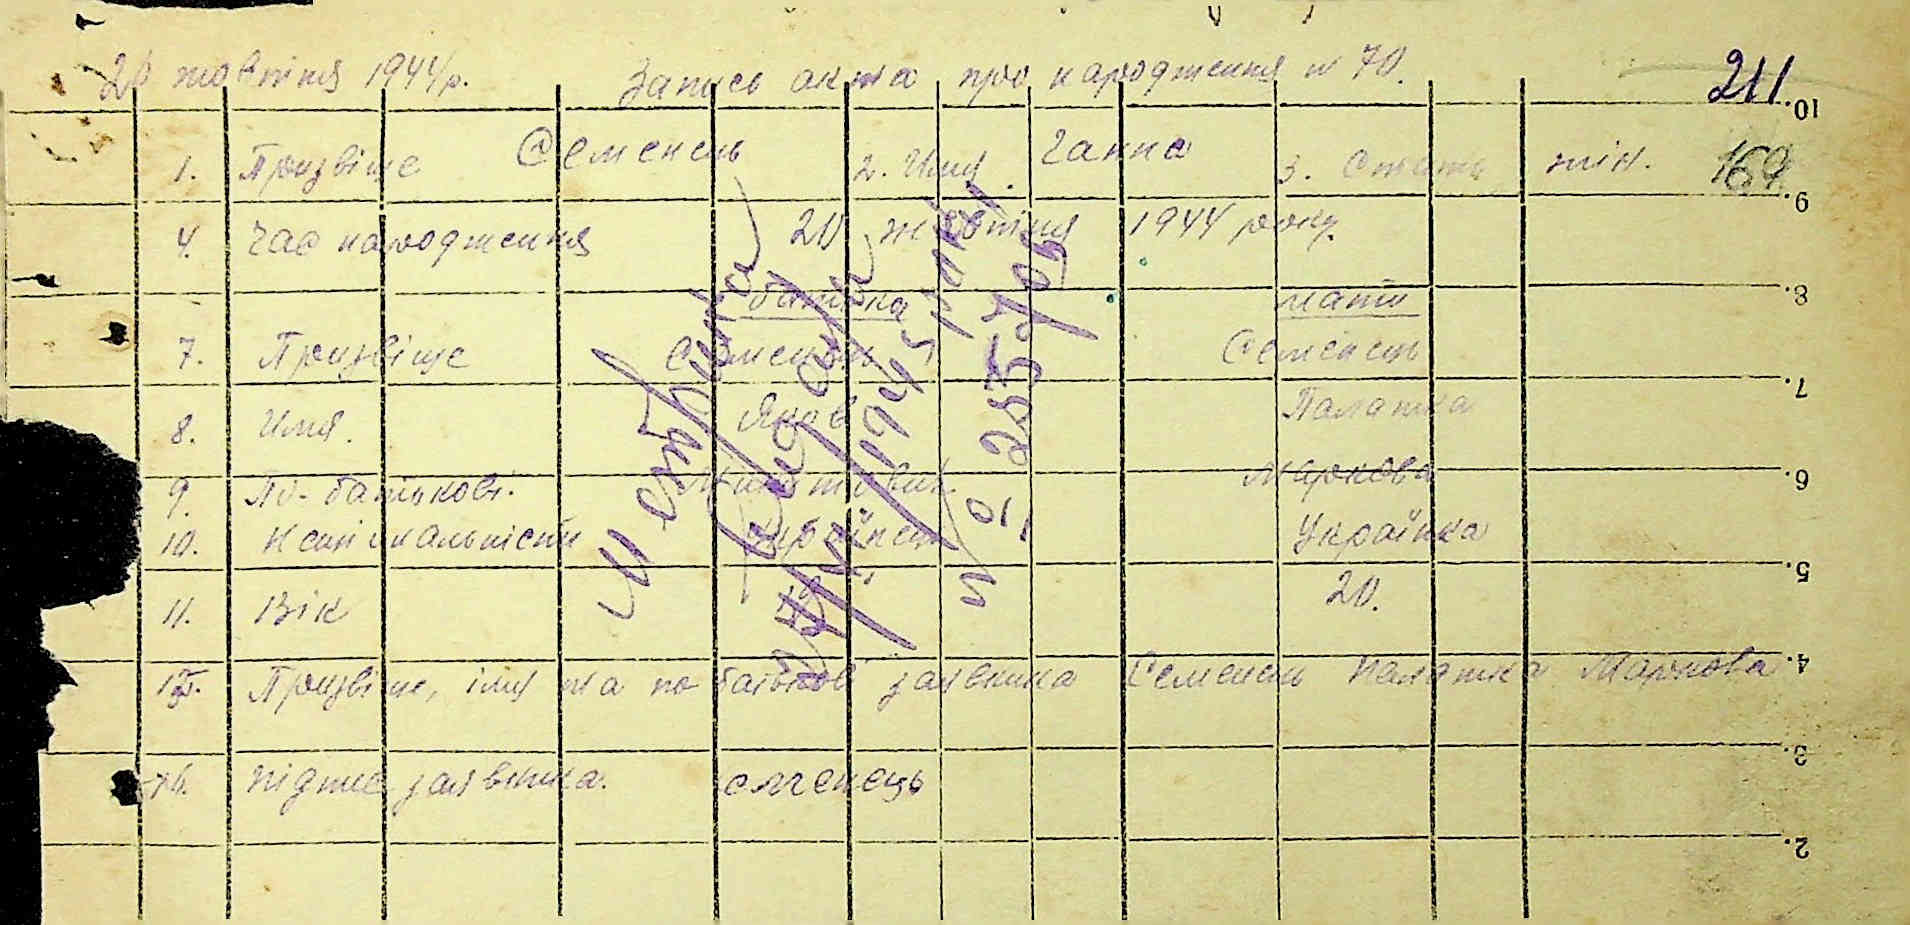 20 жовтня 1944 р. Запись акта про народження № 70.
211
1. Призвіще Семенець 2. Имя. Ганна 3. Стать жін. 169
4. Час народження 20 жовтня 1944 року.
батька мати
7. Призвіще Семенець Семенець
8. Имя. Яков Палажка
9. По-батькові. Маркова
10. Національність Українець Українка
11. Вік 20.
15. Призвіще, імя та по батькові заявника Семенець Палажка Маркова
16. підпис заявника. семенець
Метрика
1945 року
10. 9. 8. 7. 6. 5. 4. 3. 2.